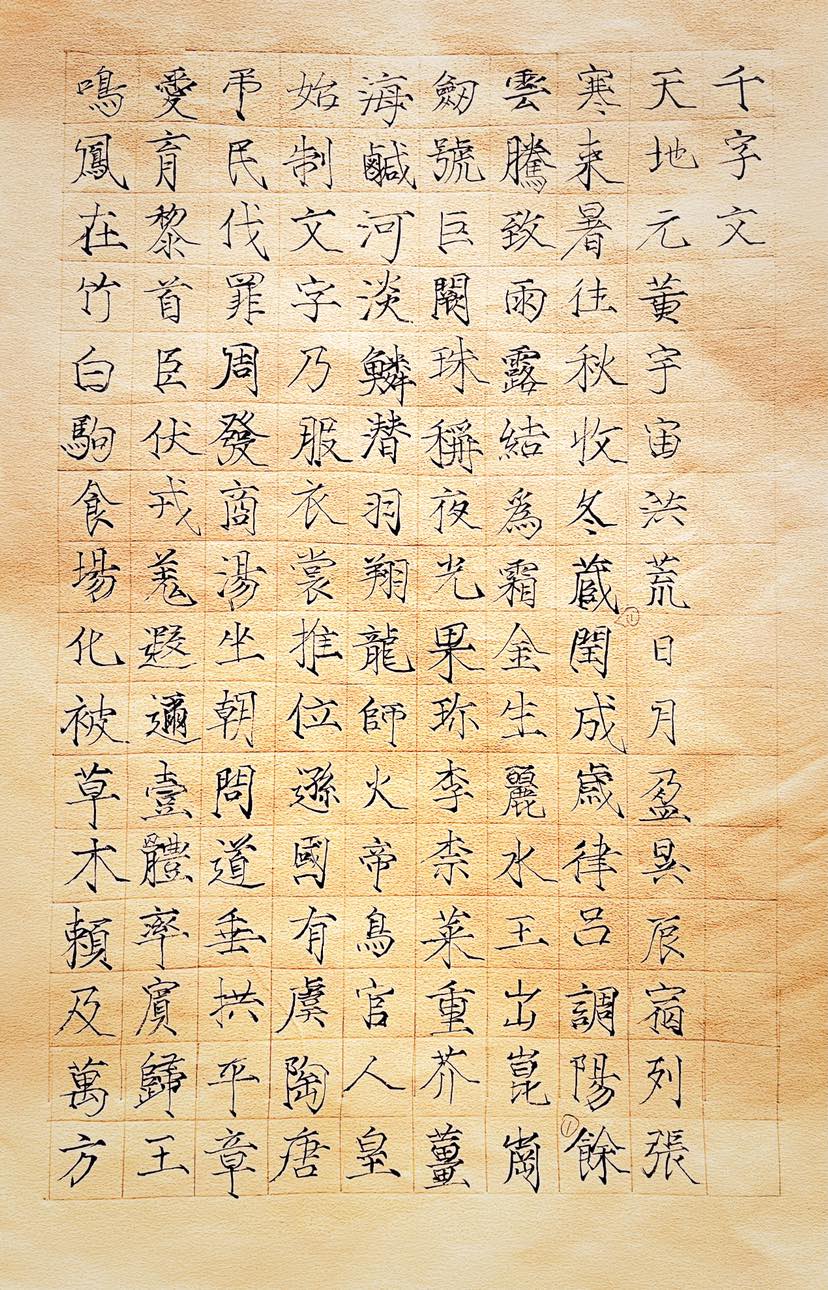 千字文
天地元黄宇宙洪荒日月盈昃辰宿列張
寒来暑往秋收冬蔵閏成歲律吕調陽餘
雲騰致雨露結為霜金生麗水玉出崑崗
劔號巨闕珠稱夜光果珍李柰菜重芥薑
海鹹河淡鱗潜羽翔龍師火帝鳥官人皇
始制文字乃服衣裳推位遜國有虞陶唐
弔民伐罪周發商湯坐朝問道垂拱平章
愛育黎首臣伏戎羌遐邇壹體率賓歸王
鳴鳳在竹白駒食場化被草木賴及萬方